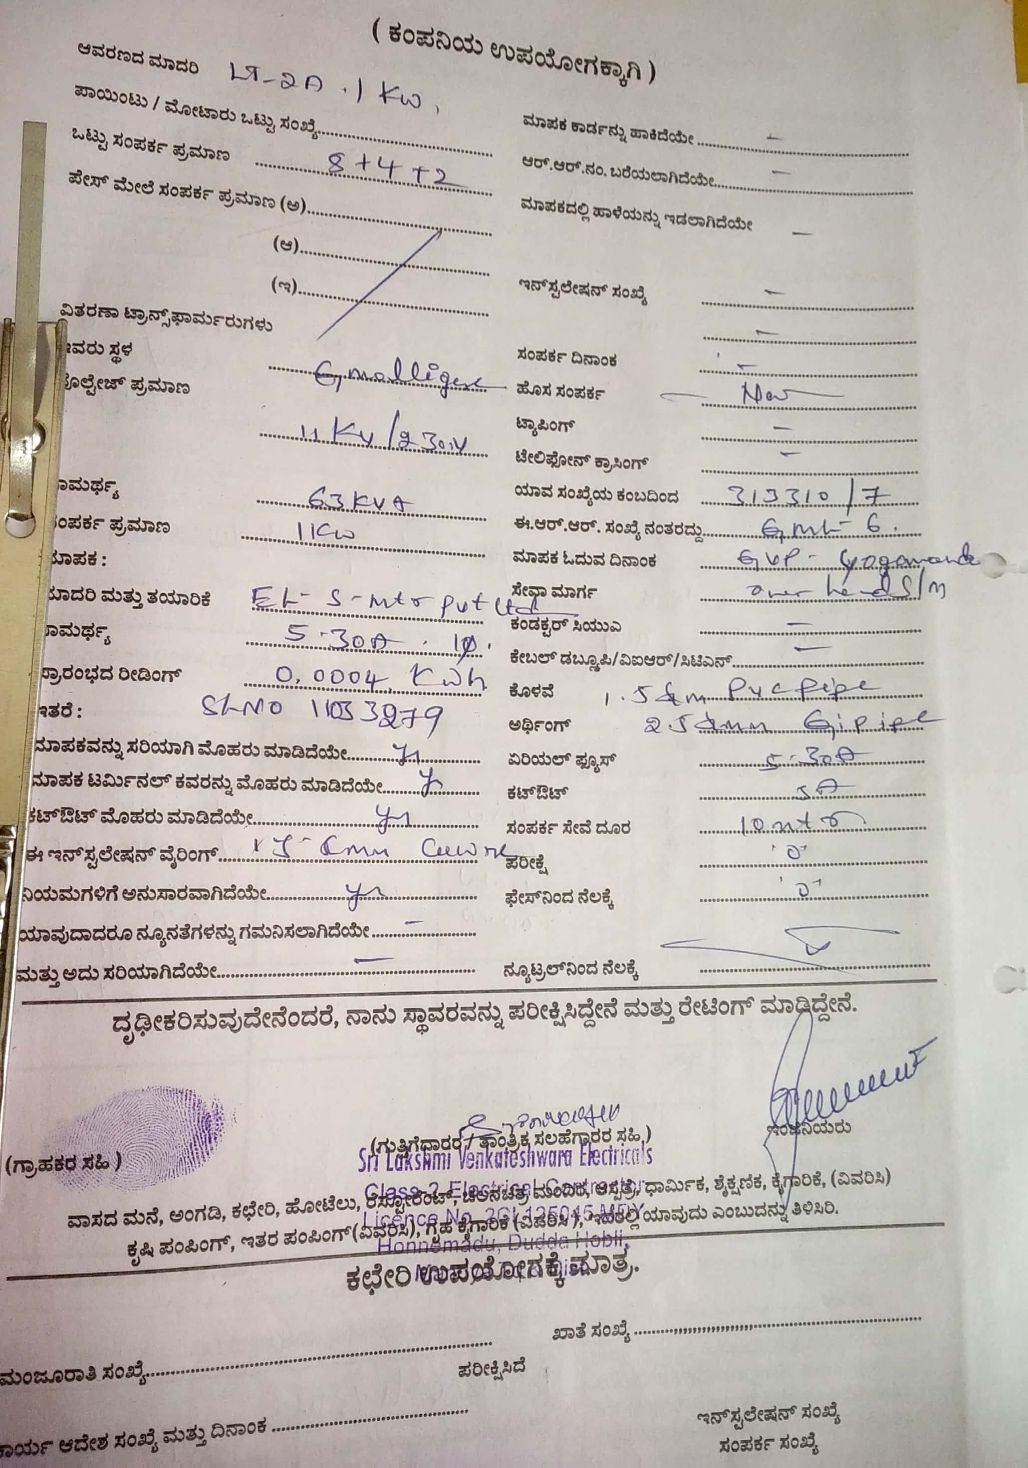 ( ಕಂಪನಿಯ ಉಪಯೋಗಕ್ಕಾಗಿ )
ಆವರಣದ ಮಾದರಿ LT-2A . 1 KW,
ಪಾಯಿಂಟು / ಮೋಟಾರು ಒಟ್ಟು ಸಂಖ್ಯೆ
ಒಟ್ಟು ಸಂಪರ್ಕ ಪ್ರಮಾಣ 8+4+2
ಪೇಸ್ ಮೇಲೆ ಸಂಪರ್ಕ ಪ್ರಮಾಣ (ಅ)
(ಆ)
(ಇ)
ವಿತರಣಾ ಟ್ರಾನ್ಸ್‌ಫಾರ್ಮರುಗಳು
ಇವರು ಸ್ಥಳ Gmalligere
ವೋಲ್ಟೇಜ್ ಪ್ರಮಾಣ
11 KV / 230V
ಸಾಮರ್ಥ್ಯ 63 KVA
ಸಂಪರ್ಕ ಪ್ರಮಾಣ 1 KW
ಮಾಪಕ :
ಮಾದರಿ ಮತ್ತು ತಯಾರಿಕೆ EL-S-mtr Pvt Ltd
ಸಾಮರ್ಥ್ಯ 5-30A . 1ø.
ಪ್ರಾರಂಭದ ರೀಡಿಂಗ್ 0.0004 KWh
ಇತರೆ : SL NO 11033279
ಮಾಪಕವನ್ನು ಸರಿಯಾಗಿ ಮೊಹರು ಮಾಡಿದೆಯೇ
ಮಾಪಕ ಟರ್ಮಿನಲ್ ಕವರನ್ನು ಮೊಹರು ಮಾಡಿದೆಯೇ
ಕಟ್‌ಔಟ್ ಮೊಹರು ಮಾಡಿದೆಯೇ
ಈ ಇನ್‌ಸ್ಟಲೇಷನ್ ವೈರಿಂಗ್
ನಿಯಮಗಳಿಗೆ ಅನುಸಾರವಾಗಿದೆಯೇ
ಯಾವುದಾದರೂ ನ್ಯೂನತೆಗಳನ್ನು ಗಮನಿಸಲಾಗಿದೆಯೇ –
ಮತ್ತು ಅದು ಸರಿಯಾಗಿದೆಯೇ –
ಮಾಪಕ ಕಾರ್ಡನ್ನು ಹಾಕಿದೆಯೇ –
ಆರ್.ಆರ್.ನಂ. ಬರೆಯಲಾಗಿದೆಯೇ –
ಮಾಪಕದಲ್ಲಿ ಹಾಳೆಯನ್ನು ಇಡಲಾಗಿದೆಯೇ –
ಇನ್‌ಸ್ಟಲೇಷನ್ ಸಂಖ್ಯೆ –
ಸಂಪರ್ಕ ದಿನಾಂಕ –
ಹೊಸ ಸಂಪರ್ಕ New
ಟ್ಯಾಪಿಂಗ್ –
ಟೇಲಿಫೋನ್ ಕ್ರಾಸಿಂಗ್ –
ಯಾವ ಸಂಖ್ಯೆಯ ಕಂಬದಿಂದ 313310 / 7
ಈ.ಆರ್.ಆರ್. ಸಂಖ್ಯೆ ನಂತರದ್ದು GML-6.
ಮಾಪಕ ಓದುವ ದಿನಾಂಕ
ಸೇವಾ ಮಾರ್ಗ over head S/M
ಕಂಡಕ್ಟರ್ ಸಿಯುವಿ –
ಕೇಬಲ್ ಡಬ್ಲೂಪಿ/ವಿಐಆರ್/ಸಿಟಿಎಸ್ –
ಕೊಳವೆ PVC Pipe
ಅರ್ಥಿಂಗ್ Gi pipe
ಏರಿಯಲ್ ಫ್ಯೂಸ್ 5-30A
ಕಟ್‌ಔಟ್ 5A
ಸಂಪರ್ಕ ಸೇವೆ ದೂರ 10 mtr
ಪರೀಕ್ಷೆ '0'
ಫೇಸ್‌ನಿಂದ ನೆಲಕ್ಕೆ '0'
ನ್ಯೂಟ್ರಲ್‌ನಿಂದ ನೆಲಕ್ಕೆ
ದೃಢೀಕರಿಸುವುದೇನೆಂದರೆ, ನಾನು ಸ್ಥಾವರವನ್ನು ಪರೀಕ್ಷಿಸಿದ್ದೇನೆ ಮತ್ತು ರೇಟಿಂಗ್ ಮಾಡಿದ್ದೇನೆ.
(ಗ್ರಾಹಕರ ಸಹಿ )
(ಗುತ್ತಿಗೆದಾರರ / ತಾಂತ್ರಿಕ ಸಲಹೆಗಾರರ ಸಹಿ,)
ಇಂಜಿನಿಯರು
Sri Lakshmi Venkateshwara Electricals
Class-2 Electrical Contractor
Honnemadu, Dudda Hobli,
ವಾಸದ ಮನೆ, ಅಂಗಡಿ, ಕಛೇರಿ, ಹೋಟೆಲು, ರೆಸ್ಟೋರೆಂಟ್, ಚಲನಚಿತ್ರ ಮಂದಿರ, ಆಸ್ಪತ್ರೆ, ಧಾರ್ಮಿಕ, ಶೈಕ್ಷಣಿಕ, ಕೈಗಾರಿಕೆ, (ವಿವರಿಸಿ)
ಕೃಷಿ ಪಂಪಿಂಗ್, ಇತರ ಪಂಪಿಂಗ್(ವಿವರಿಸಿ), ಗೃಹ ಕೈಗಾರಿಕೆ (ವಿವರಿಸಿ ), ಇದರಲ್ಲಿ ಯಾವುದು ಎಂಬುದನ್ನು ತಿಳಿಸಿರಿ.
ಕಛೇರಿ ಉಪಯೋಗಕ್ಕೆ ಮಾತ್ರ.
ಖಾತೆ ಸಂಖ್ಯೆ
ಮಂಜೂರಾತಿ ಸಂಖ್ಯೆ
ಪರೀಕ್ಷಿಸಿದೆ
ಕಾರ್ಯ ಆದೇಶ ಸಂಖ್ಯೆ ಮತ್ತು ದಿನಾಂಕ
ಇನ್‌ಸ್ಟಲೇಷನ್ ಸಂಖ್ಯೆ
ಸಂಪರ್ಕ ಸಂಖ್ಯೆ